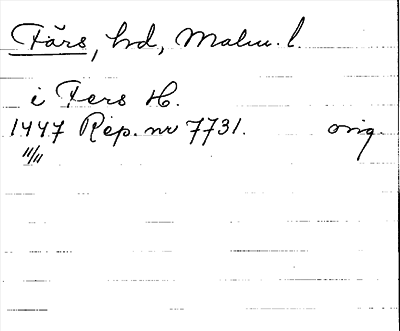 Färs, hd, Malm. l.
i Fers H.
1447 Rep. nr 7731. orig.
11/11